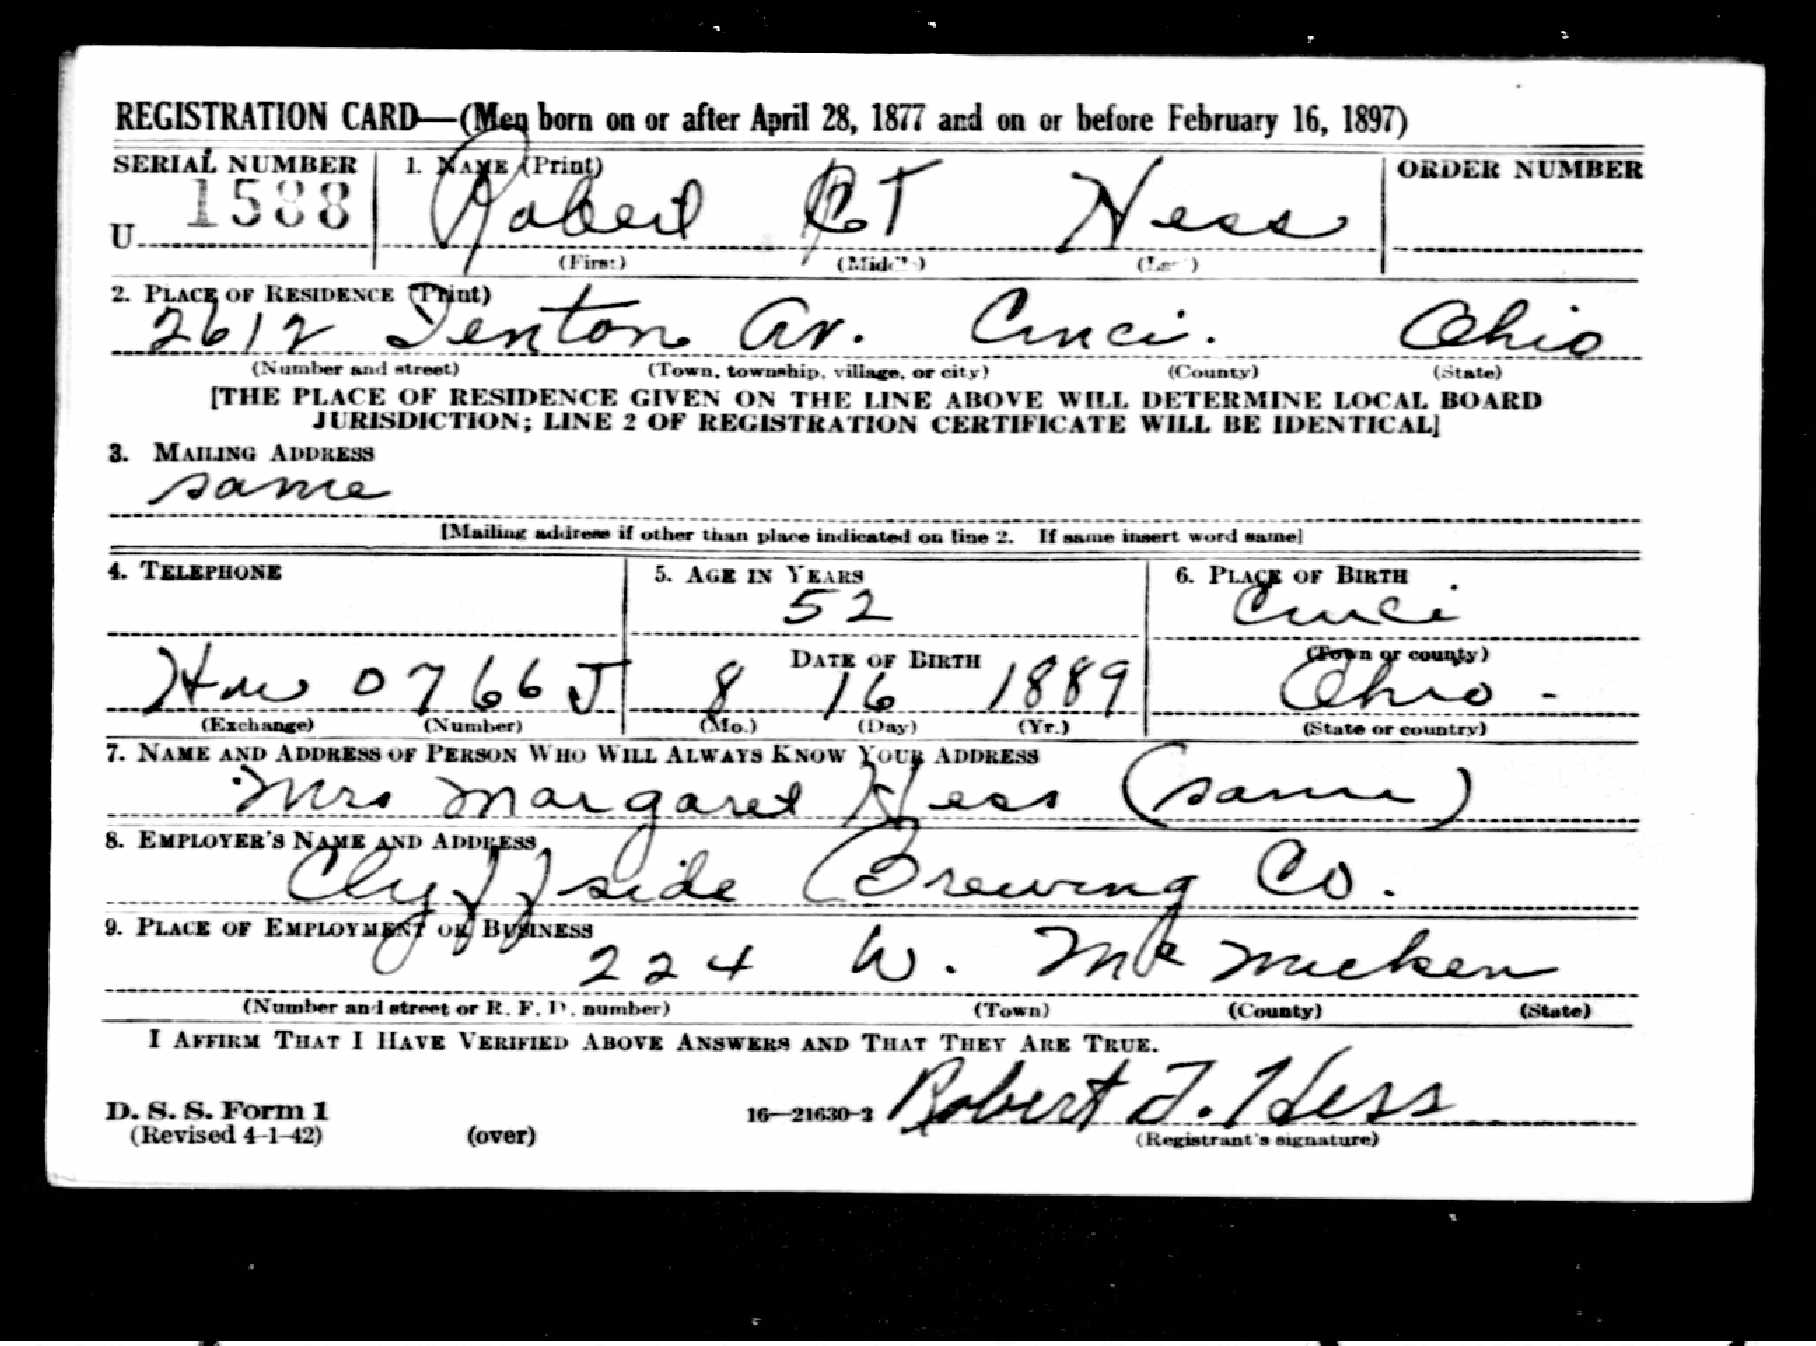 REGISTRATION CARD—(Men born on or after April 28, 1877 and on or before February 16, 1897)
SERIAL NUMBER 1. NAME (Print) ORDER NUMBER
U 1588 Robert T Hess
(First) (Middle) (Last)
2. PLACE OF RESIDENCE (Print)
2612 Fenton Av. Cinci. Ohio
(Number and street) (Town, township, village, or city) (County) (State)
[THE PLACE OF RESIDENCE GIVEN ON THE LINE ABOVE WILL DETERMINE LOCAL BOARD
JURISDICTION; LINE 2 OF REGISTRATION CERTIFICATE WILL BE IDENTICAL]
3. MAILING ADDRESS
same
[Mailing address if other than place indicated on line 2. If same insert word same]
4. TELEPHONE 5. AGE IN YEARS 6. PLACE OF BIRTH
52 Cinci
DATE OF BIRTH (Town or county)
0766 J 8 16 1889 Ohio -
(Exchange) (Number) (Mo.) (Day) (Yr.) (State or country)
7. NAME AND ADDRESS OF PERSON WHO WILL ALWAYS KNOW YOUR ADDRESS
Mrs Margaret Hess (same)
8. EMPLOYER'S NAME AND ADDRESS
Clyffside Brewing Co.
9. PLACE OF EMPLOYMENT OR BUSINESS
224 W. Mc Micken
(Number and street or R. F. D. number) (Town) (County) (State)
I AFFIRM THAT I HAVE VERIFIED ABOVE ANSWERS AND THAT THEY ARE TRUE.
D. S. S. Form 1 16—21630-2 Robert T. Hess
(Revised 4-1-42) (over) (Registrant's signature)